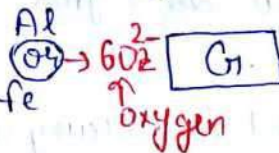 Al
Or → 6O2²⁻ G.
Fe
Oxygen